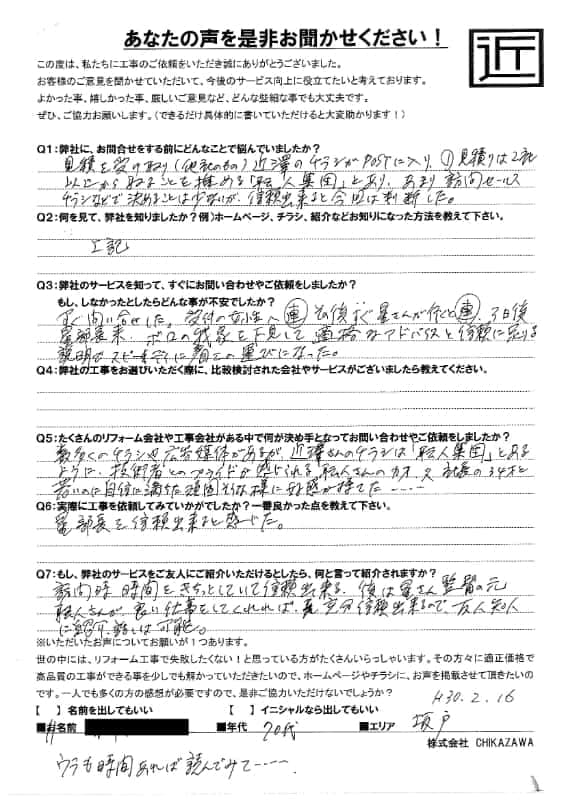 あなたの声を是非お聞かせください！
近
この度は、私たちに工事のご依頼をいただき誠にありがとうございました。
お客様のご意見を聞かせていただいて、今後のサービス向上に役立てたいと考えております。
よかった事、嬉しかった事、厳しいご意見など、どんな些細な事でも大丈夫です。
ぜひ、ご協力お願いします。（できるだけ具体的に書いていただけると大変助かります！）
Q1：弊社に、お問合せをする前にどんなことで悩んでいましたか？
見積を受け取り（他社のもの）近澤のチラシがPOSTに入り、① 見積りは2社
以上から取ることを推める「職人集団」とあり、あまり訪問セールス
チラシなどで決めることは少ないが、信頼出来ると今回は判断した。
Q2：何を見て、弊社を知りましたか？例）ホームページ、チラシ、紹介などお知りになった方法を教えて下さい。
上記
Q3：弊社のサービスを知って、すぐにお問い合わせやご依頼をしましたか？
もし、しなかったとしたらどんな事が不安でしたか？
すぐ問い合せした。受付の女性へ㊥ その後すぐ星さんが行くと㊥、3日後
部長来、ボロの我家を下見して適格なアドバイスと信頼に足りる
説明でスピーディに着工の運びになった。
Q4：弊社の工事をお選びいただく際に、比較検討された会社やサービスがございましたら教えてください。
Q5：たくさんのリフォーム会社や工事会社がある中で何が決め手となってお問い合わせやご依頼をしましたか？
数多くのチラシや広告媒体があるが、近澤さんのチラシは「職人集団」とある
ように、技術者とのプライドが感じられる職人さんのカオ、又 社長の34才と
若いのに自信に満ちた頑固そうな様に好感が持てた ‥‥
Q6：実際に工事を依頼してみていかがでしたか？一番良かった点を教えて下さい。
部長を信頼出来ると感じた。
Q7：もし、弊社のサービスをご友人にご紹介いただけるとしたら、何と言って紹介されますか？
訪問時 時間をきちっとしていて信頼出来る、後は さん監督の元
職人さんが、良い仕事をしてくれれば、充分信頼出来るので、友人知人
に紹介、話しは可能。
※いただいたお声についてお願いが１つあります。
世の中には、リフォーム工事で失敗したくない！と思っている方がたくさんいらっしゃいます。その方々に適正価格で
高品質の工事ができる事を少しでも解かっていただきたいので、ホームページやチラシに、お声を掲載させて頂きたい
のです。一人でも多くの方の感想が必要ですので、是非ご協力いただけないでしょうか？
H30.2.16
【 】名前を出してもいい 【 】イニシャルなら出してもいい
■お名前 ■年代 70代 ■エリア 坂戸
株式会社 CHIKAZAWA
ウラも時間あれば読んでみて‥‥.